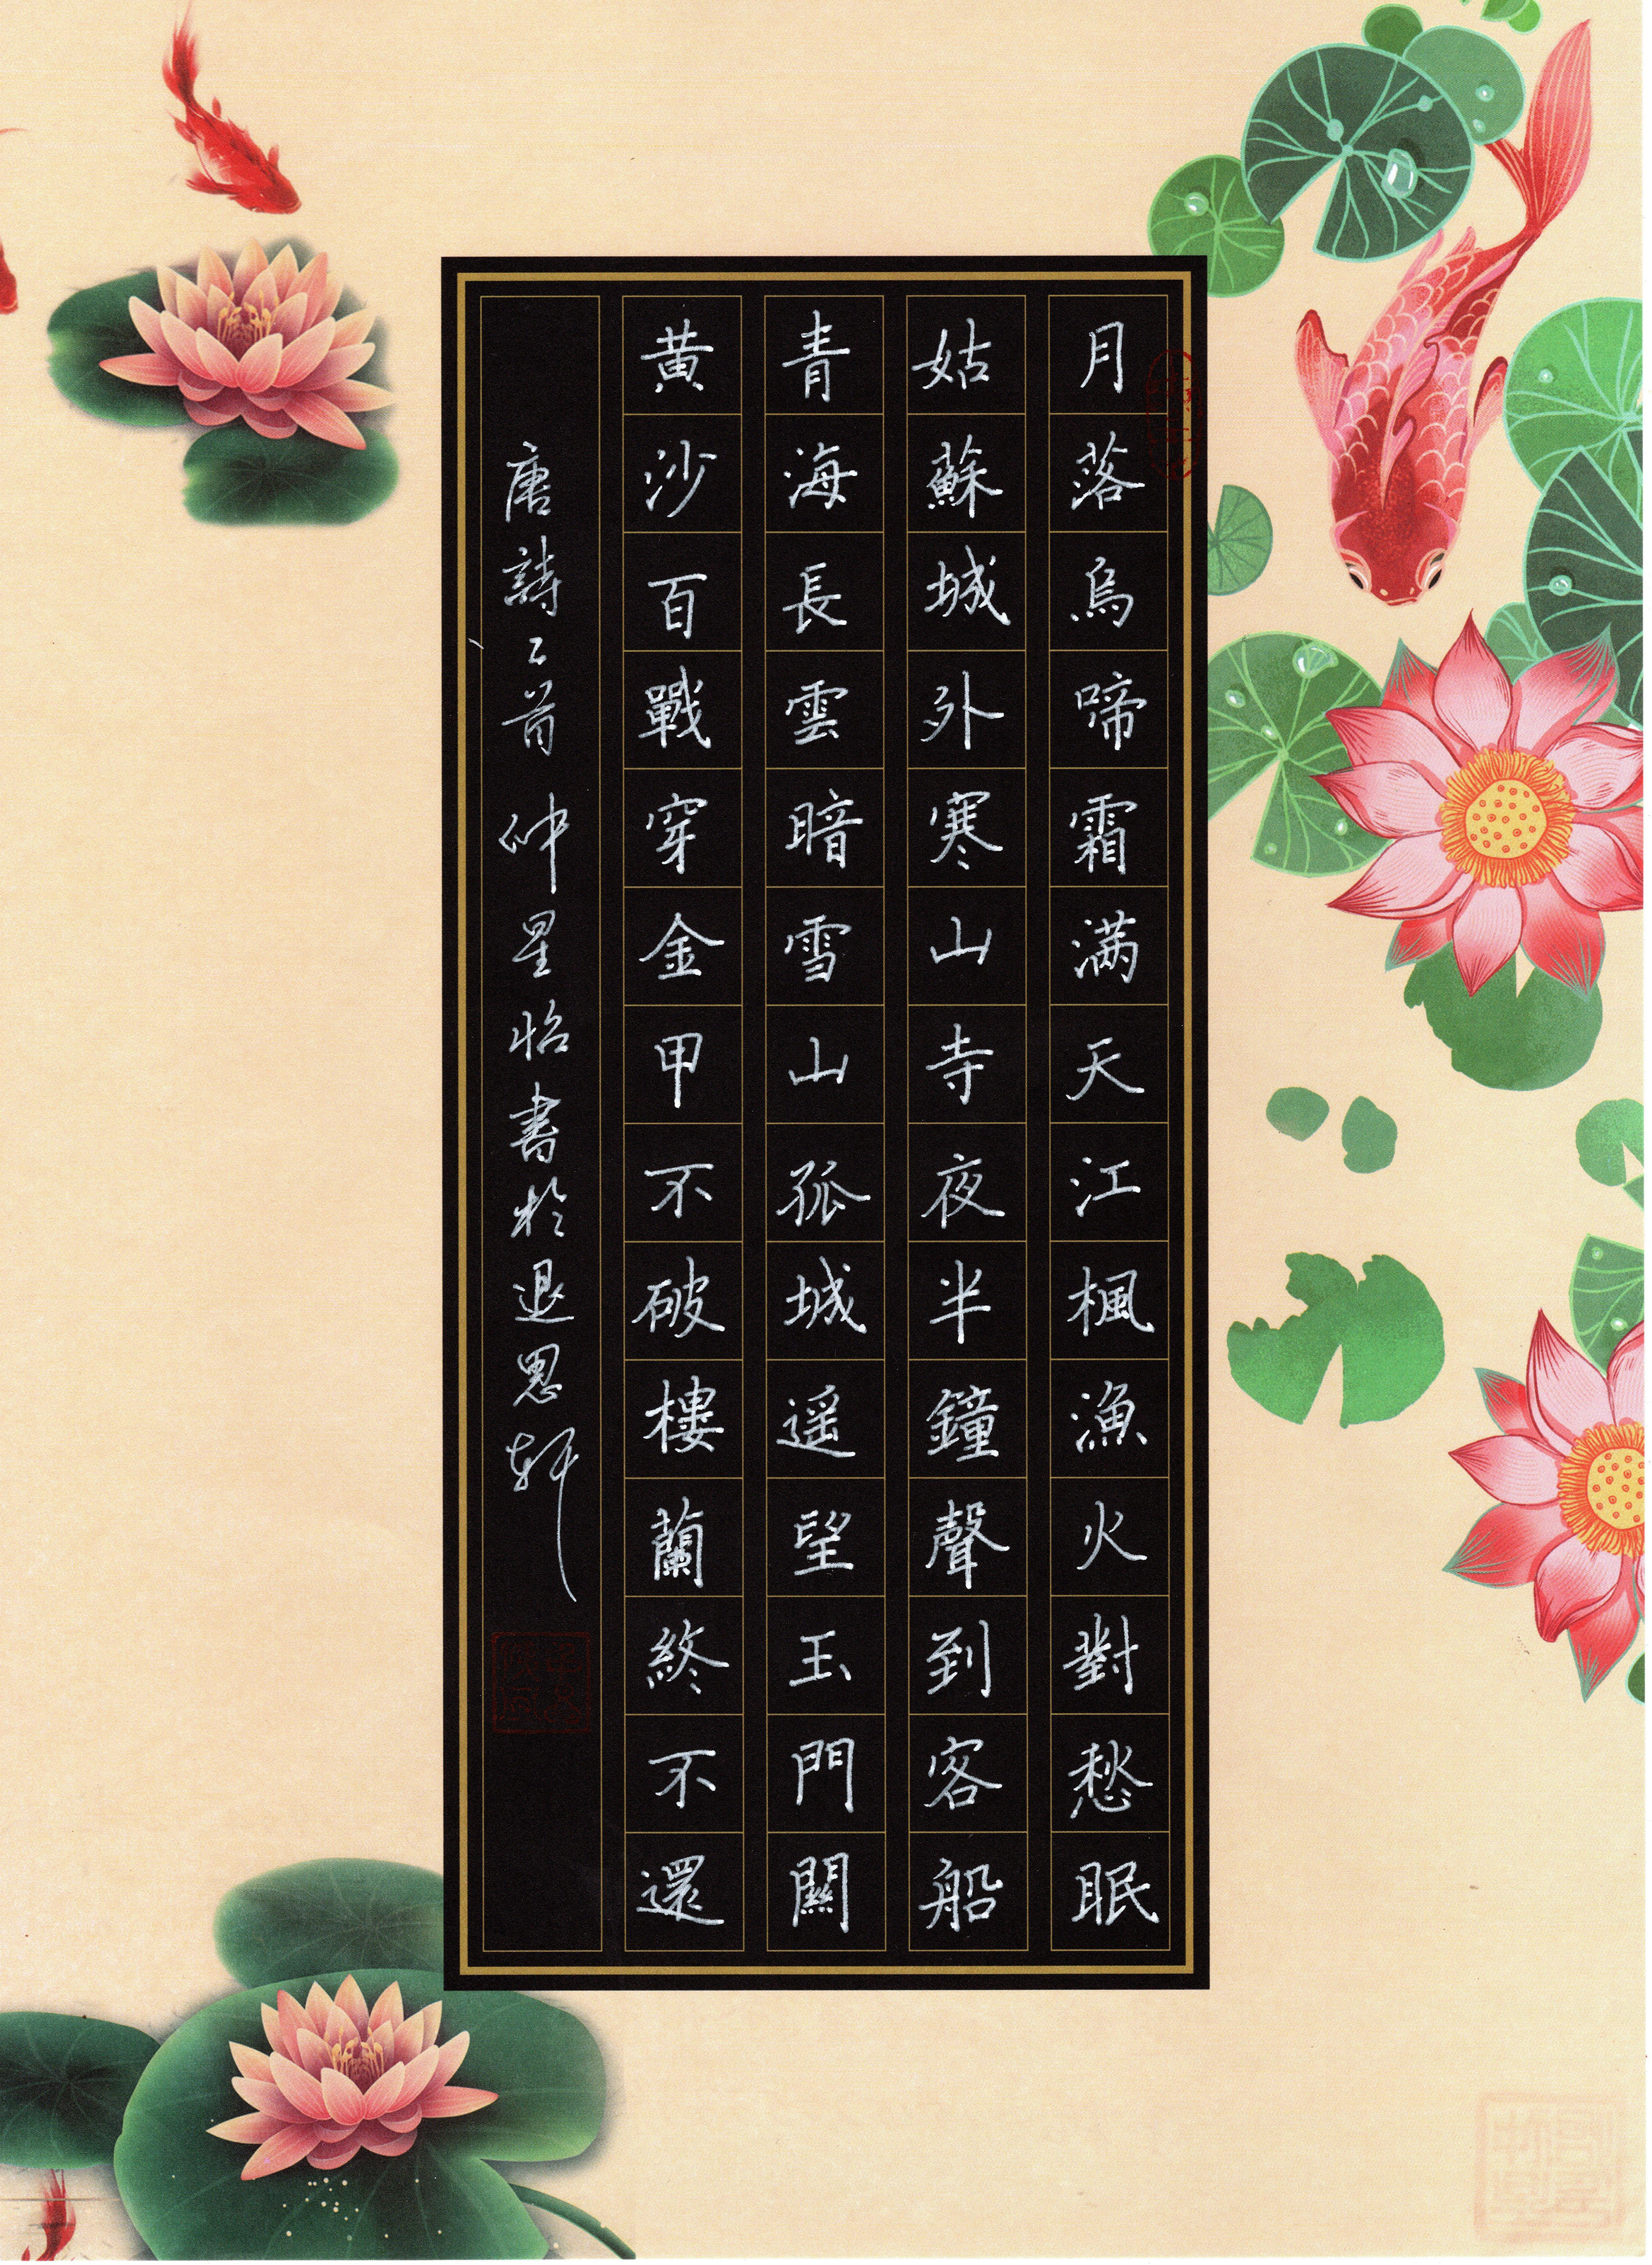 月落烏啼霜满天江楓漁火對愁眠
姑蘇城外寒山寺夜半鐘聲到客船
青海長雲暗雪山孤城遥望玉門關
黄沙百戰穿金甲不破樓蘭終不還
唐詩二首 仲星書於退思轩